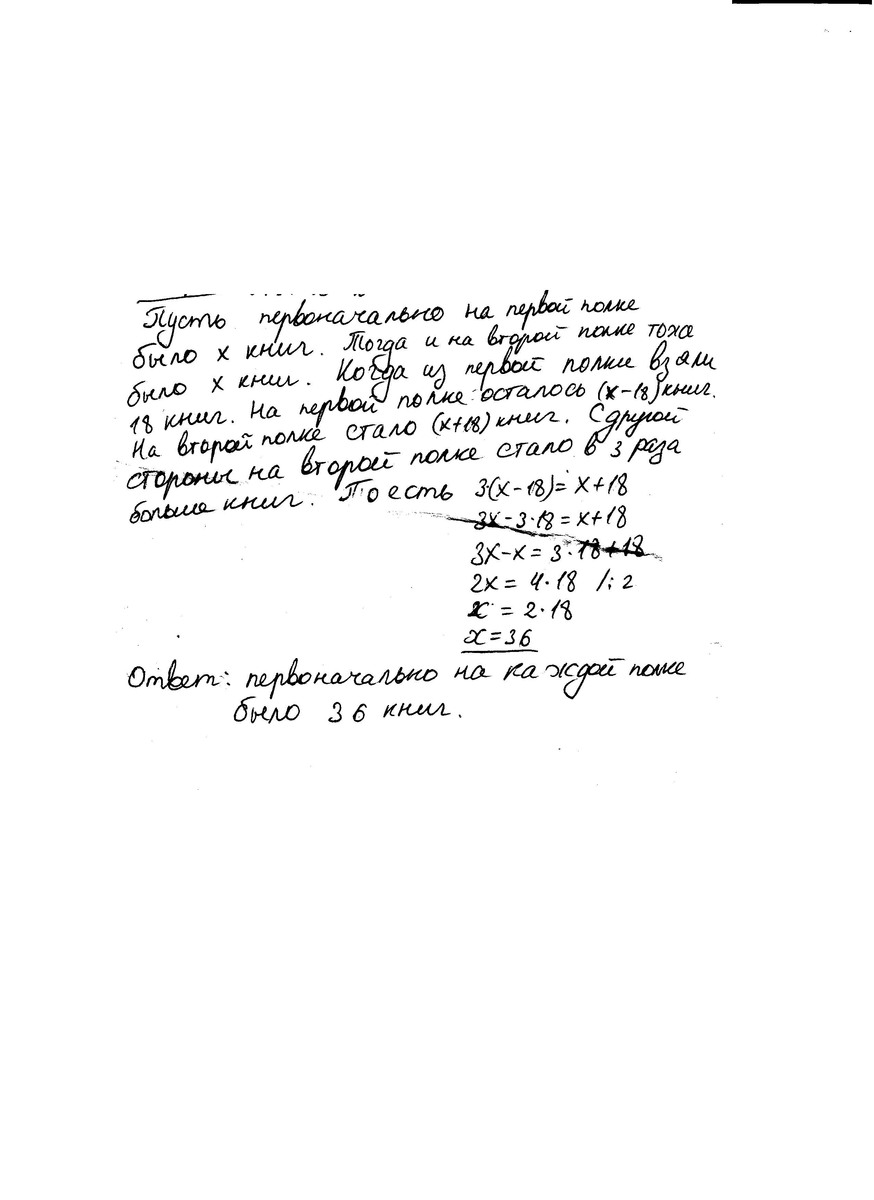 Пусть первоначально на первой полке
было x книг. Тогда и на второй полке тоже
было x книг. Когда из первой полки взяли
18 книг. На первой полке осталось (x-18) книг.
На второй полке стало (x+18) книг. С другой
стороны на второй полке стало в 3 раза
больше книг. То есть 3·(x-18)=x+18
3x-3·18=x+18
3x-x=3·18+18
2x=4·18 /:2
x=2·18
x=36
Ответ: первоначально на каждой полке
было 36 книг.